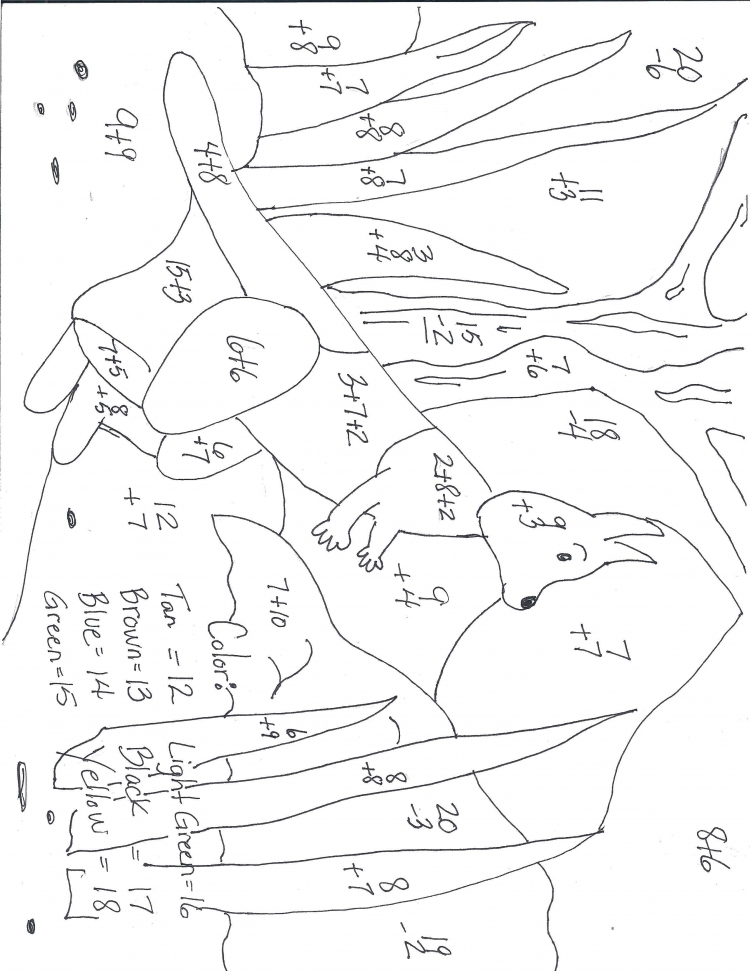 8+6
20
-6
7
+7
11
+3
18
-4
9
+3
7
+6
15
-2
2+8+2
20
-3
19
-2
9
+4
3
8
+4
8
+8
7
+8
8
+8
8
+7
3+7+2
7
+7
9
+8
6
+9
7+10
6+6
4+8
6
+7
15+3
12
+7
7+5
8
+5
9+9
Color:
Tan = 12
Brown=13
Blue = 14
Green=15
Light Green=16
Black = 17
Yellow = 18